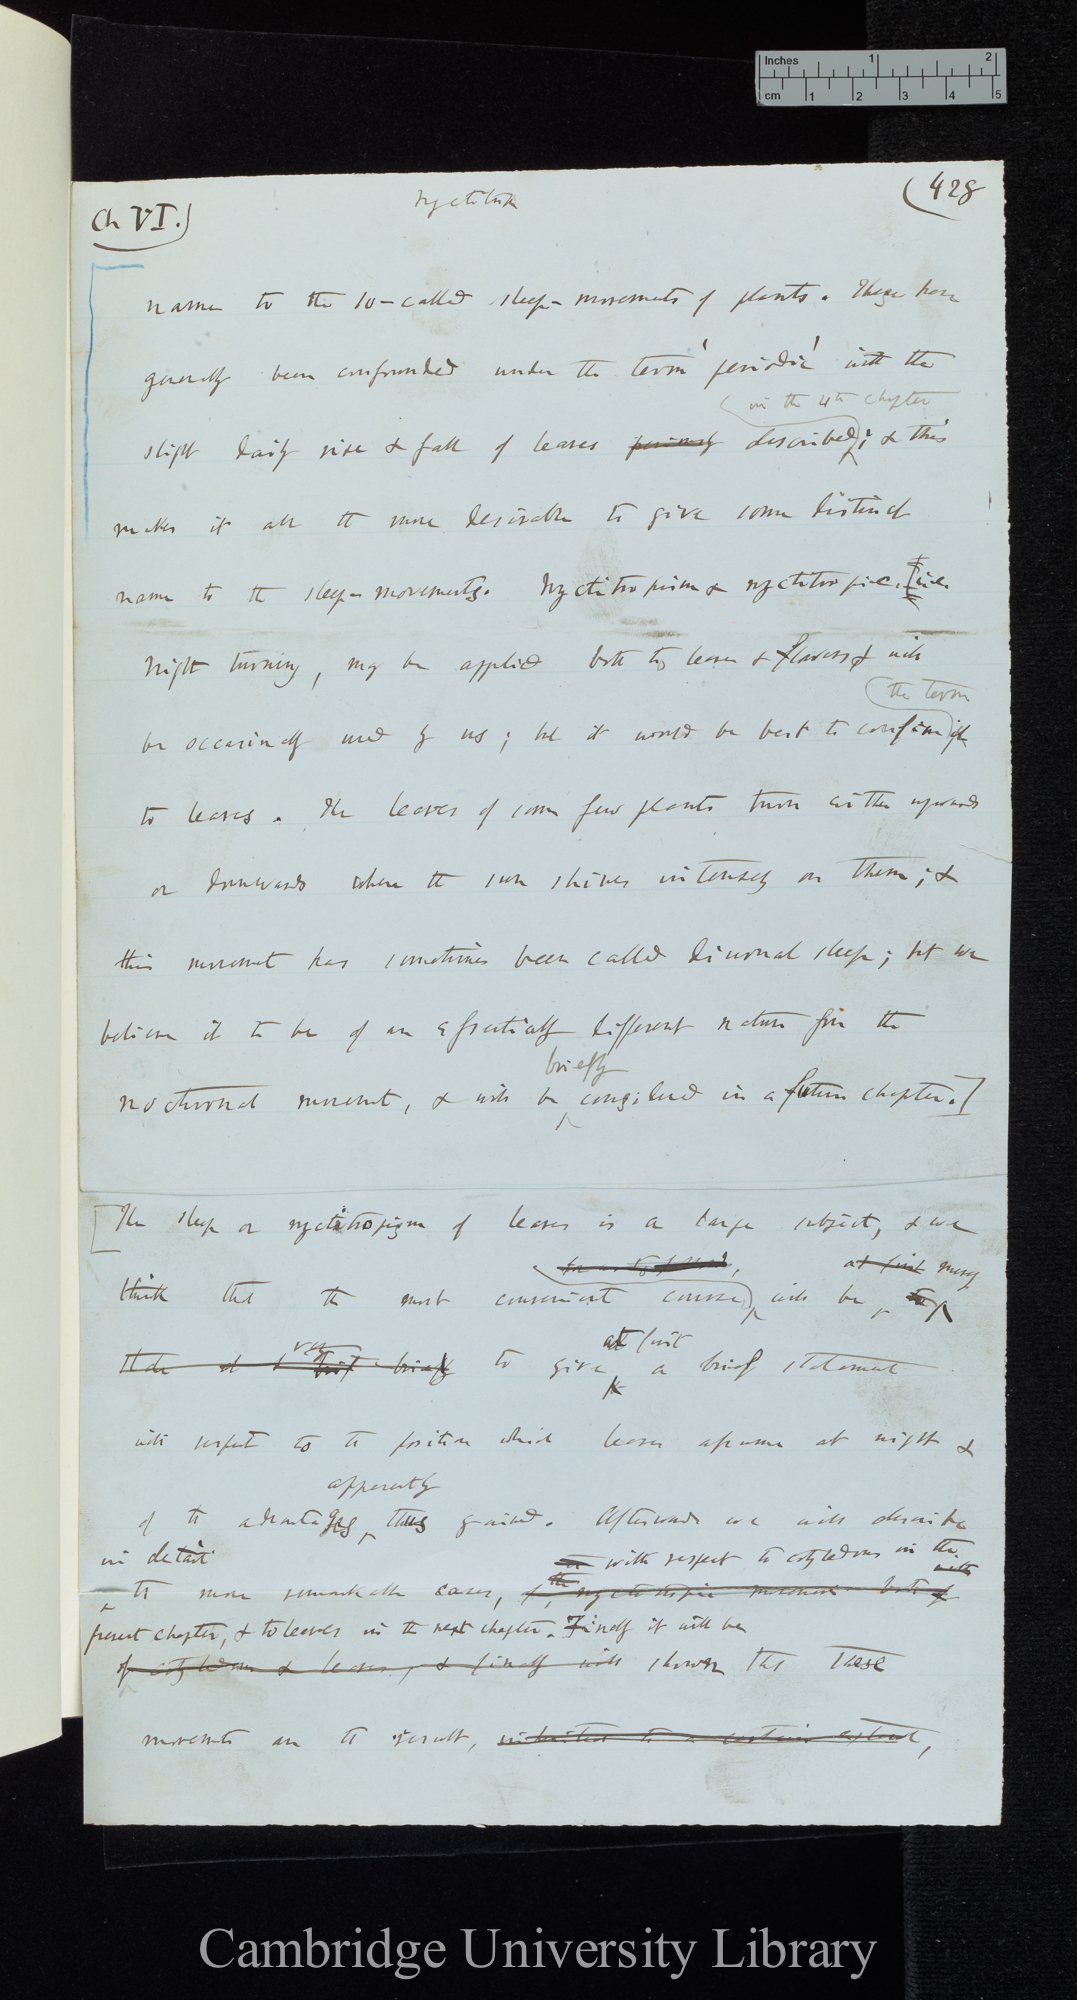 Inches 1 2
cm 1 2 3 4 5
Ch VI.)
(428
name to the so-called sleep-movements of plants. These have
generally been confounded under the term 'periodic' with the
in the 4th chapter
slight daily rise & fall of leaves previously described; & this
makes it all the more desirable to give some distinct
name to the sleep-movements. Nyctitropism & nyctitropic, [i.e.
night turning, may be applied both to leaves & flowers & will
the term
be occasionally used by us; but it would be best to confine it
to leaves. The leaves of some few plants turn either upwards
or downwards when the sun shines intensely on them; &
this movement has sometimes been called diurnal sleep; but we
believe it to be of an essentially different nature from the
briefly
nocturnal movement, & will be considered in a future chapter.]
[The sleep or nyctitropism of leaves is a large subject, & we
at first merely
think that the most convenient course, will be
very
at first
to give a brief statement
with respect to the position which leaves assume at night &
apparently
of the advantages thus gained. Afterwards we will describe
in detail
with respect to cotyledons in the
the more remarkable cases, nyctitropic movements both of
present chapter, & to leaves in the next chapter. Finally it will be
of cotyledons & leaves, & finally will shown that these
movements are the result, to a certain extent,
Cambridge University Library